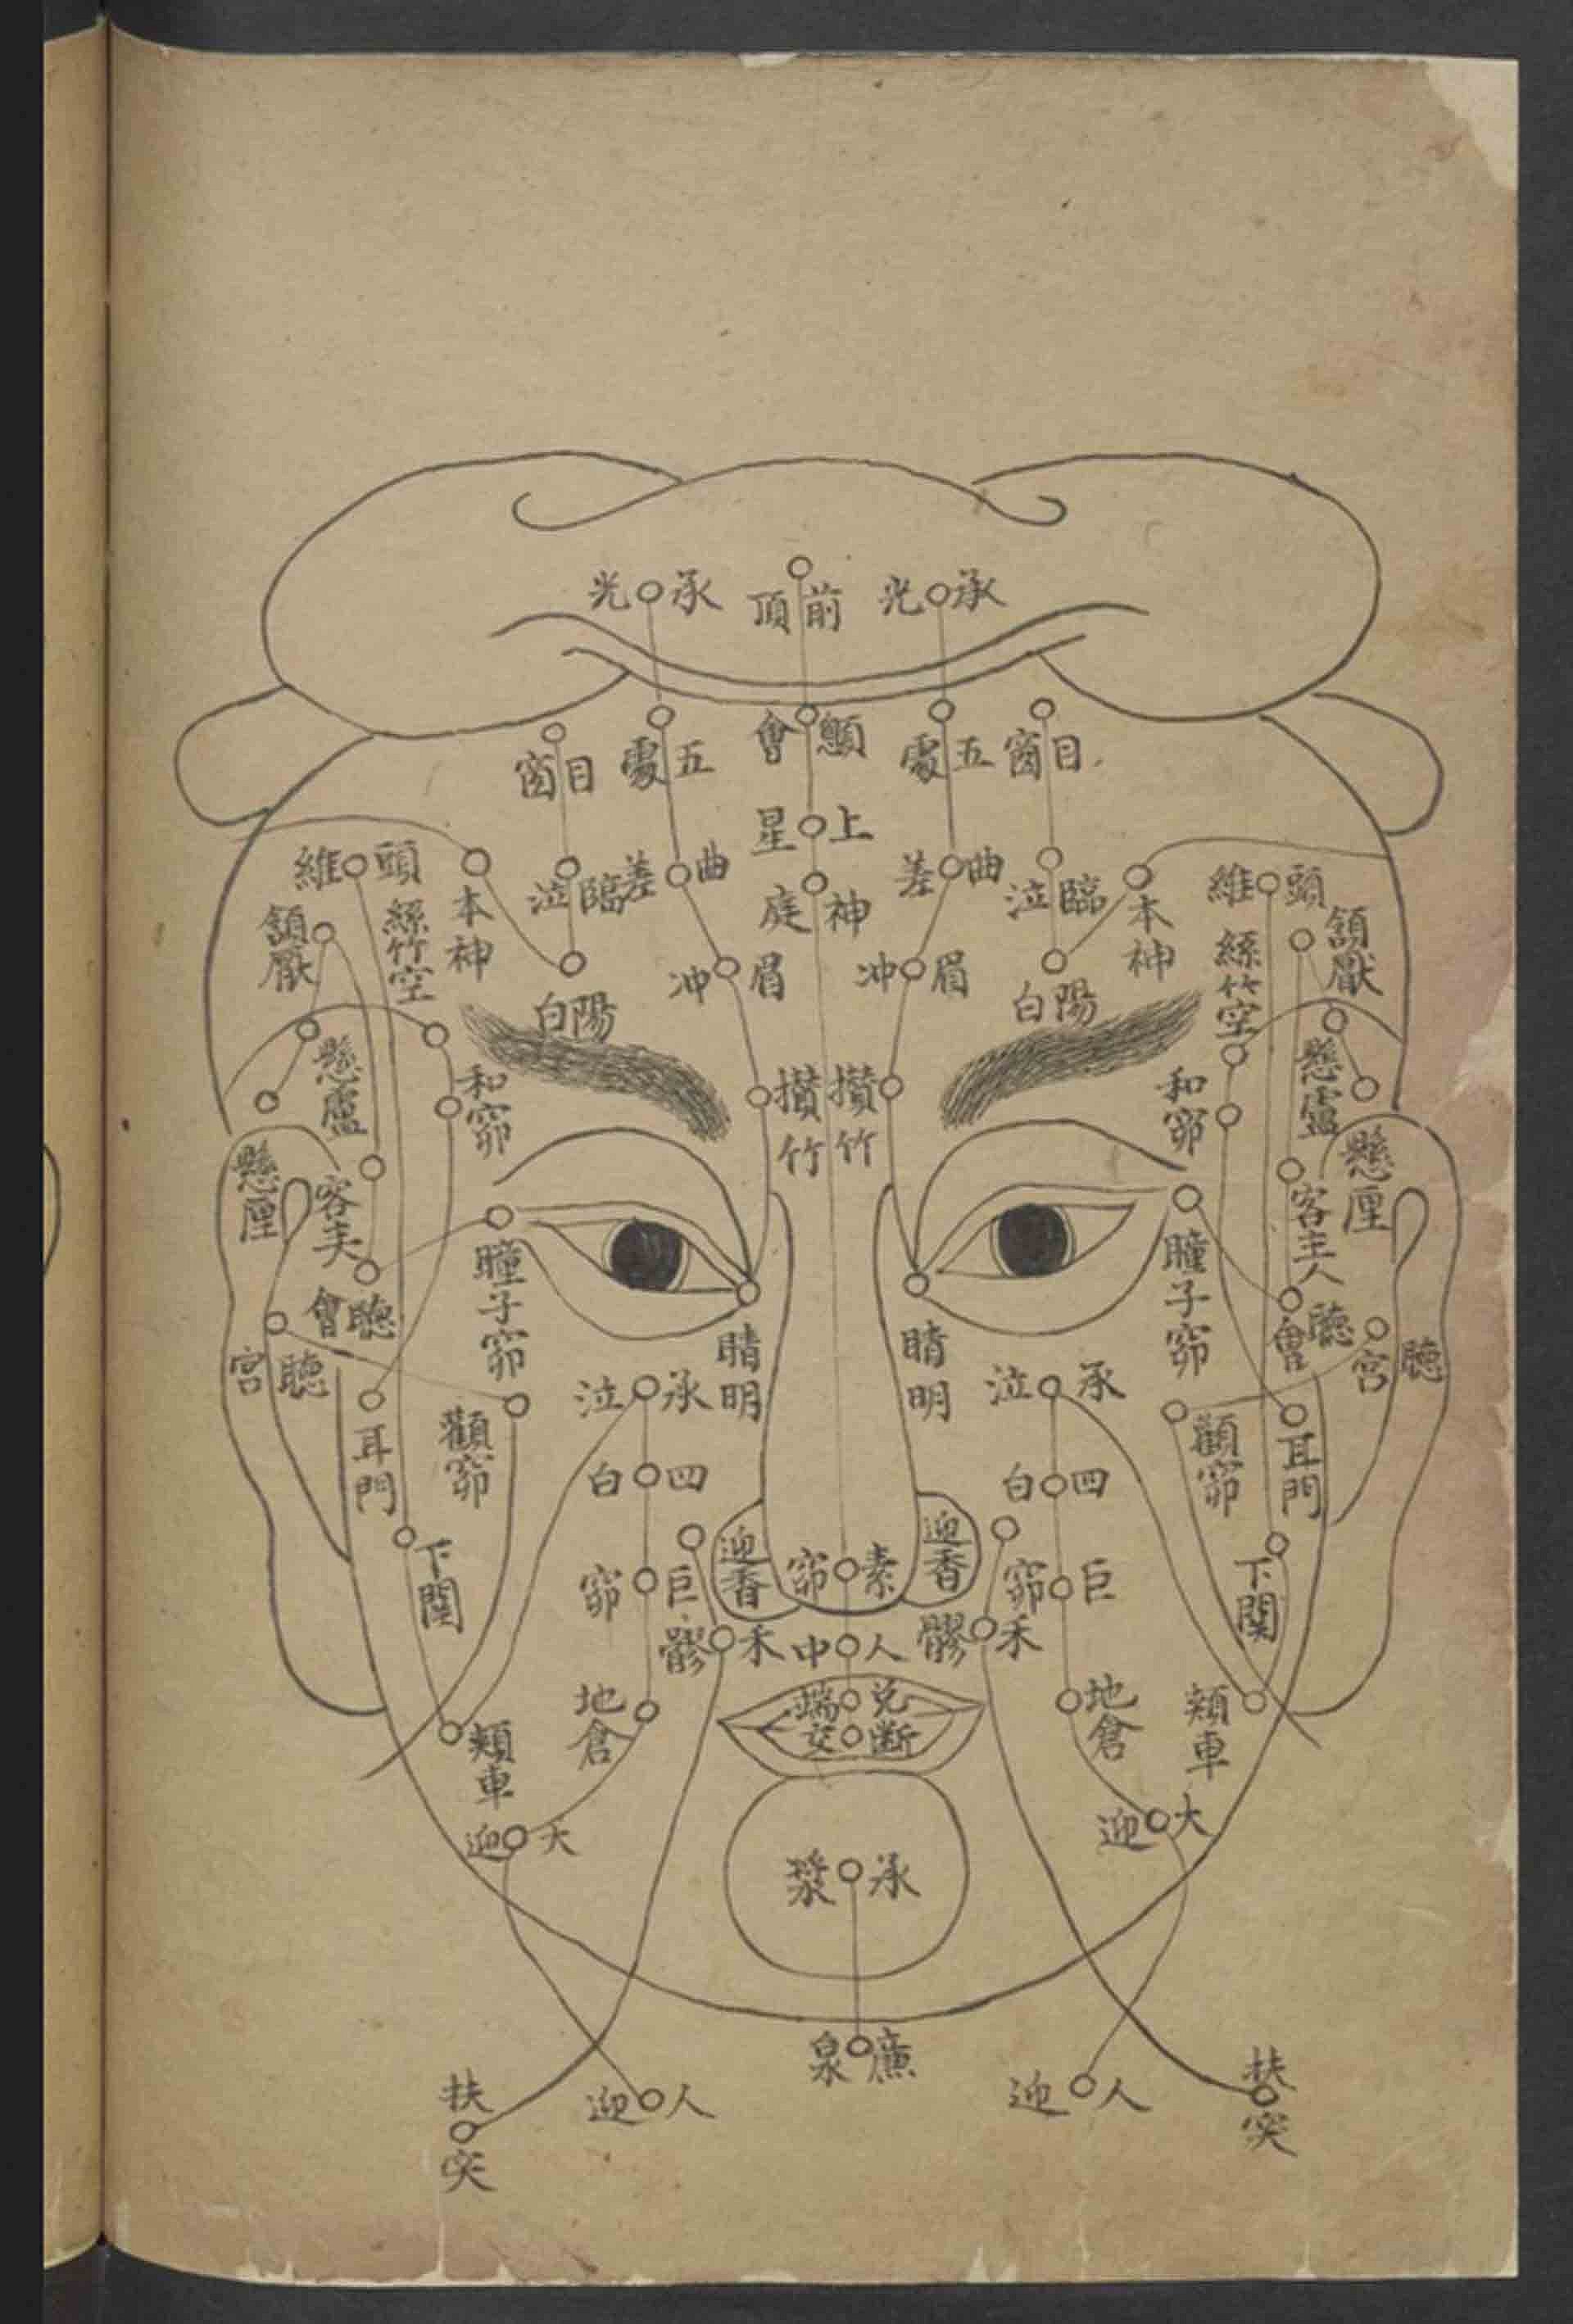 承光
前頂
承光
目窗
五處
顖會
五處
目窗
上星
曲差
曲差
臨泣
臨泣
神庭
頭維
頭維
本神
本神
頷厭
頷厭
絲竹空
絲竹空
眉冲
眉冲
陽白
陽白
懸盧
懸盧
和窌
和窌
攅竹
攅竹
懸厘
懸厘
客主人
客主人
瞳子窌
瞳子窌
聽會
聽會
聽宮
聽宮
睛明
睛明
承泣
承泣
耳門
耳門
顴窌
顴窌
四白
四白
下関
下関
巨窌
巨窌
迎香
迎香
素窌
禾髎
禾髎
人中
地倉
地倉
兑端
断交
頬車
頬車
大迎
大迎
承漿
廉泉
人迎
人迎
扶突
扶突